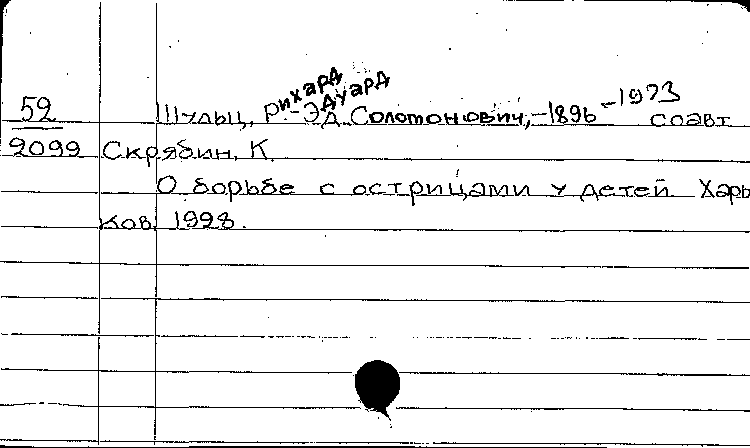 Рихард
Эдуард
52 Шульц, Р.-Эд. Соломонович, -1896 -1973 соавт
2099 Скрябин, К.
О борьбе с острицами у детей Харь
ков, 1928.